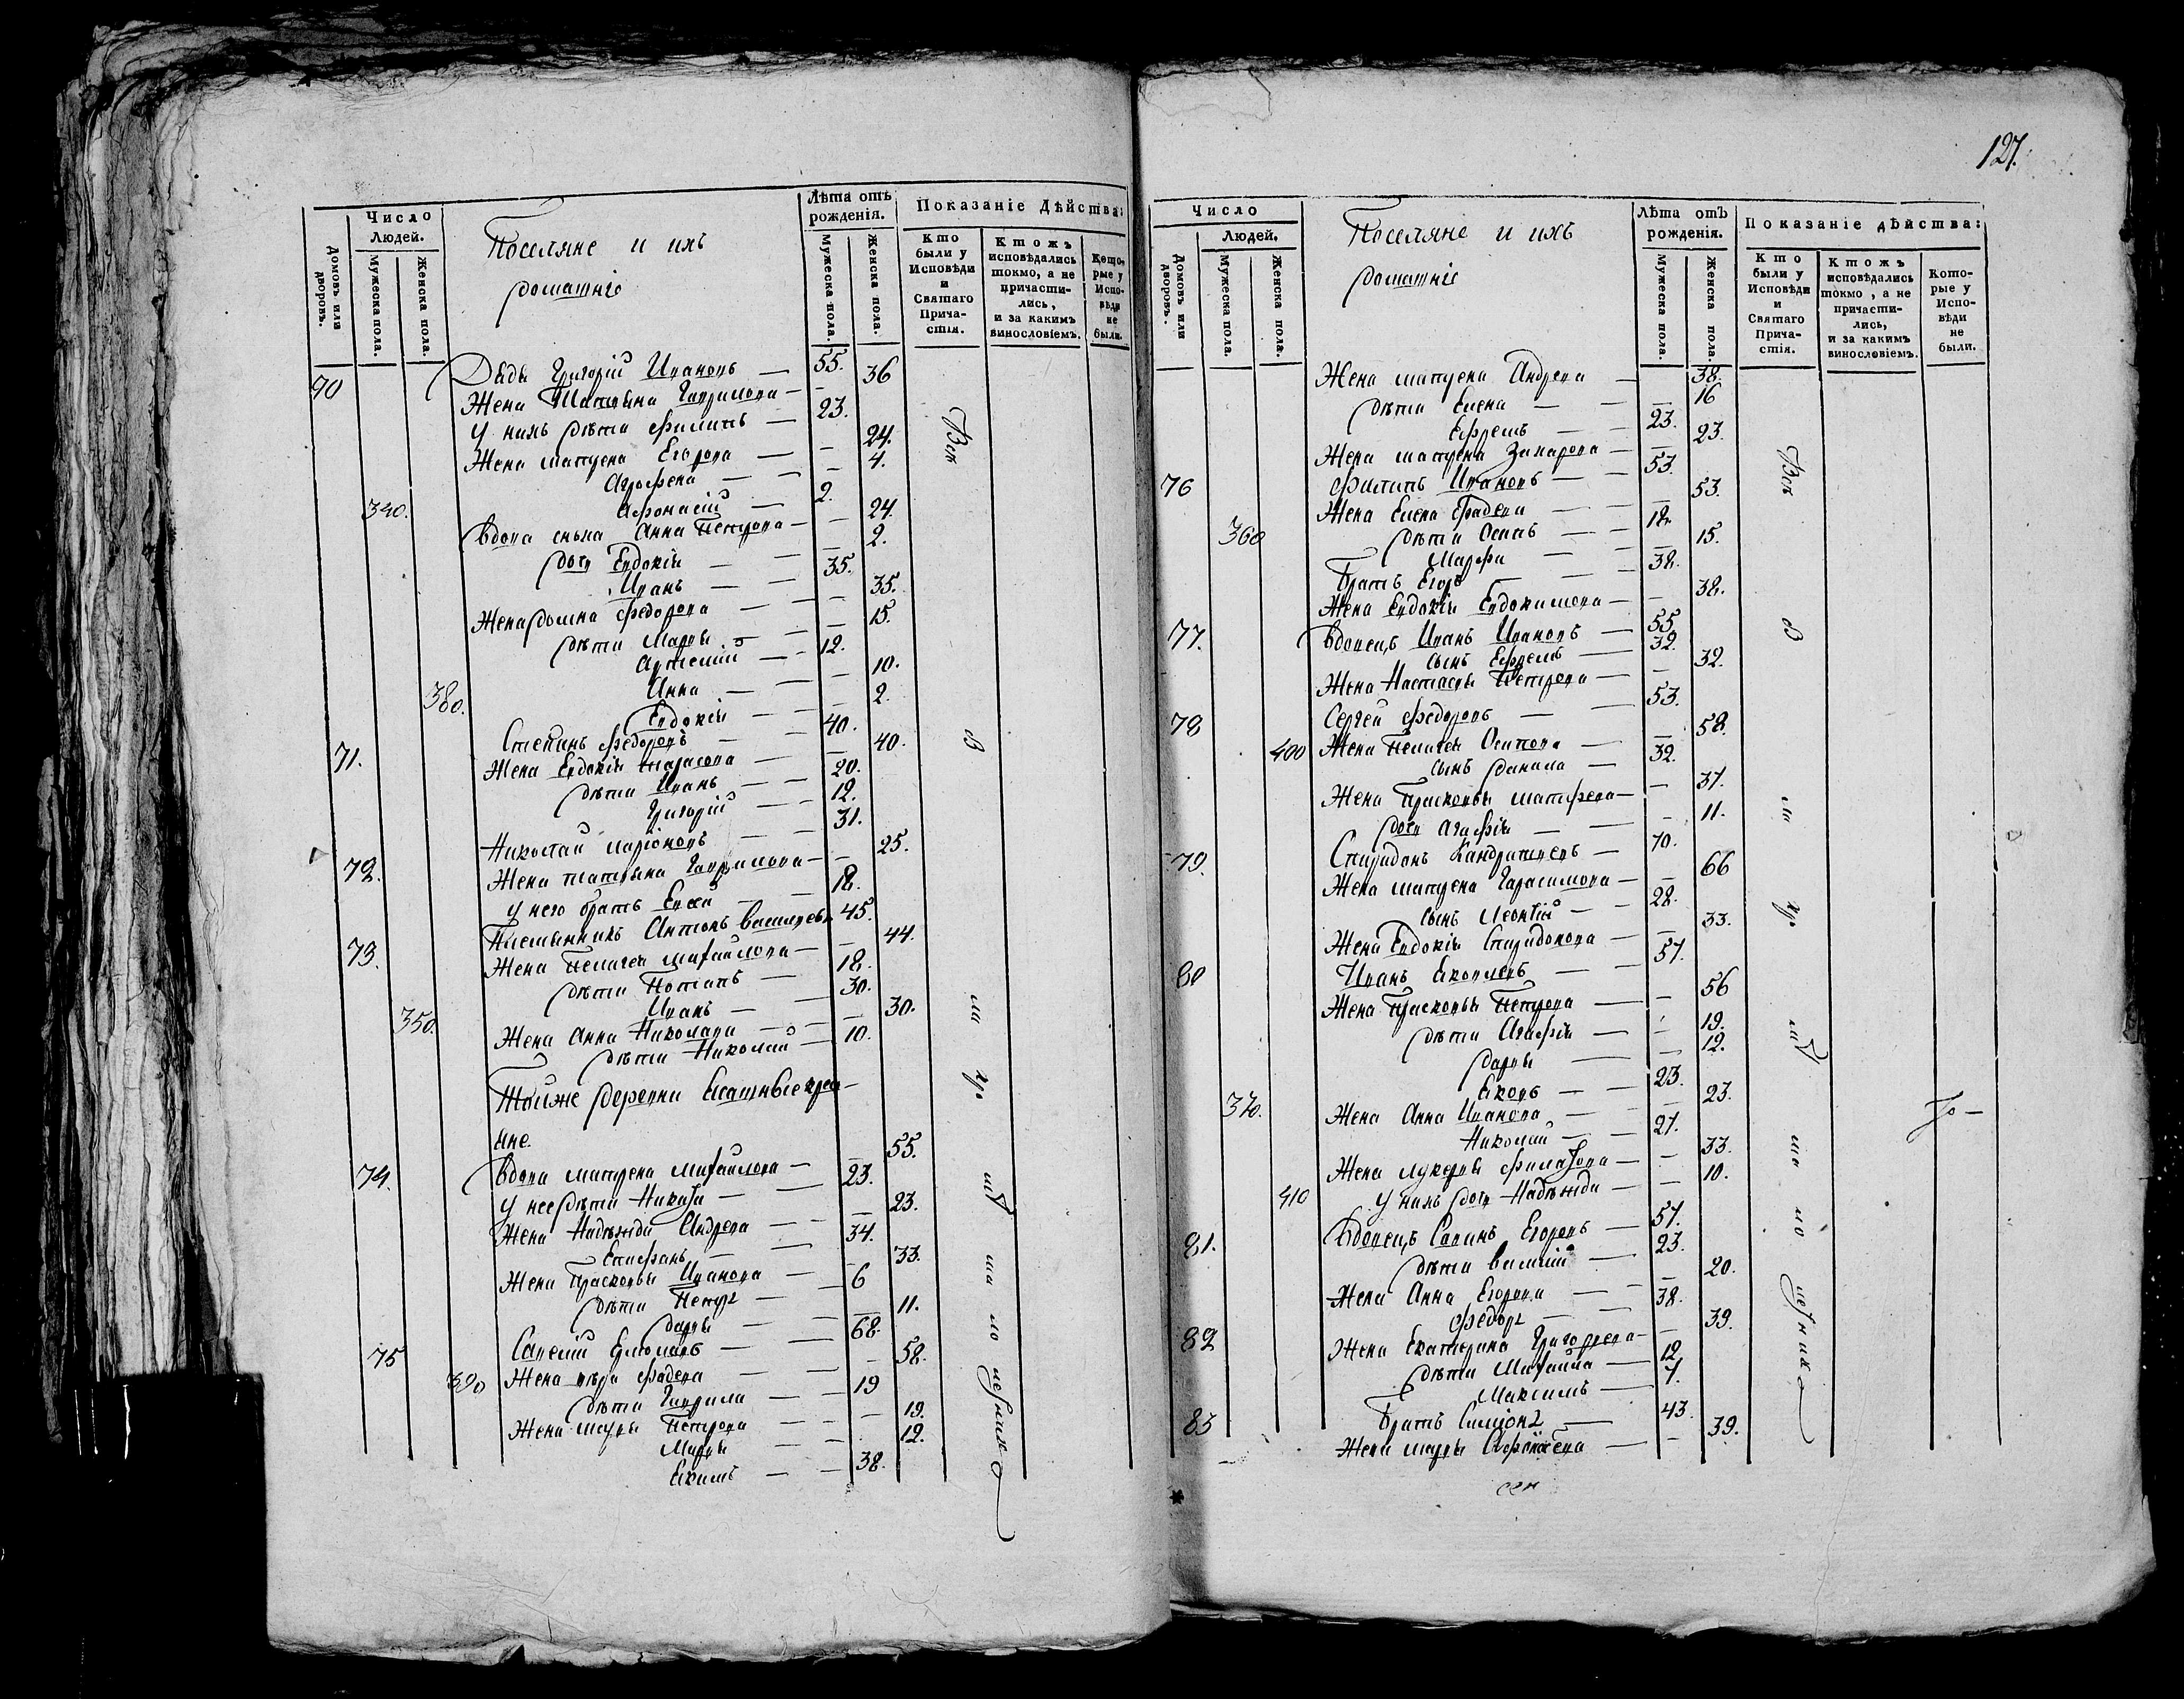 Число
Людей.
Домовъ или дворовъ.
Мужеска пола.
Женска пола.
Поселяне и ихъ
домашніе
Лѣта отъ рожденія.
Мужеска пола.
Женска пола.
Показаніе Дѣйства:
Кто были у Исповѣди и Святаго Прича- стія.
Ктожъ исповѣдались токмо, а не причасти- лись, и за какимъ винословіемъ.
Кото- рые у Испо- вѣди не были.
70 Дядя Григорій Ивановъ — 55.
Жена Татьяна Гаврилова — 36
У нихъ дѣти Филипъ — 23.
Жена Матрена Егорова — 24.
Агрофена — 4.
340. Афонасій — 2.
Вдова Анна Петрова — 24.
дочь Евдокія — 2.
Иванъ — 35.
Жена Домна Федорова — 35.
дѣти Марья — 15.
Артемій — 12.
Анна — 10.
380. Евдокія — 2.
71. Степанъ Федоровъ — 40.
Жена Евдокія Тарасова — 40.
дѣти Иванъ — 20.
Григорій — 12.
72. Николай Ларіоновъ — 31.
Жена Татьяна Гаврилова — 25.
у него братъ Евсей — 18.
73. Племянникъ Антонъ Васильевъ 45.
Жена Пелагея Михайлова — 44.
дѣти Потапъ — 18.
350. Иванъ — 30.
Жена Анна Николаева — 30.
дѣти Николай — 10.
Той же деревни Ясашные крес-
яне.
74. Вдова Матрена Михайлова — 55.
У нее дѣти Никита — 23.
Жена Надежда Андрева — 23.
Епифанъ — 34.
Жена Прасковья Иванова — 33.
дѣти Петръ — 6
Дарья — 11.
75 Савелій Ермолаевъ — 68.
390 Жена Вѣра Фадева — 58.
дѣти Гаврила — 19
Жена Марья Петрова — 19.
Марья — 12.
Екимъ — 38.
Всѣ
127.
Число
Людей.
Домовъ или дворовъ.
Мужеска пола.
Женска пола.
Поселяне и ихъ
домашніе
Лѣта отъ рожденія.
Мужеска пола.
Женска пола.
Показаніе дѣйства:
Кто были у Исповѣди и Святаго Прича- стія.
Ктожъ исповѣдались токмо, а не причасти- лись, и за какимъ винословіемъ.
Кото- рые у Испо- вѣди не были.
Жена Матрена Андрева — 38.
дѣти Елена — 16
Ефремъ — 23.
Жена Матрена Захарова — 23.
76 Филипъ Ивановъ — 53.
Жена Елена Фадева — 53.
360 дѣти Осипъ — 18.
Марфа — 15.
Братъ Егоръ — 38.
Жена Евдокія Евдокимова — 38.
77. Вдовецъ Иванъ Ивановъ — 55.
сынъ Ефремъ — 32.
Жена Настасья Петрова — 32.
78 Сергей Федоровъ — 53.
400 Жена Пелагея Осипова — 58.
сынъ Данила — 32.
Жена Прасковья Матфева — 31.
дочь Агафія — 11.
79. Спиридонъ Кандратьевъ — 70.
Жена Матрена Гарасимова — 66
сынъ Леонтій — 28.
Жена Евдокія Спиридонова — 33.
80 Иванъ Яковлевъ — 57.
Жена Прасковья Петрова — 56
дѣти Агафія — 19.
Дарья — 12.
370. Яковъ — 23.
Жена Анна Иванова — 23.
Николай — 27.
Жена Лукерья Филатова — 33.
410 у нихъ дочь Надежда — 10.
81. Вдовецъ Савинъ Егоровъ — 57.
дѣти Василій — 23.
Жена Анна Егорова — 20.
Федоръ — 38.
82 Жена Екатерина Григорьева — 39.
дѣти Михайла — 12.
Максимъ — 7.
83 Братъ Симіонъ — 43.
Жена Марья Афонасева — 39.
Всѣ